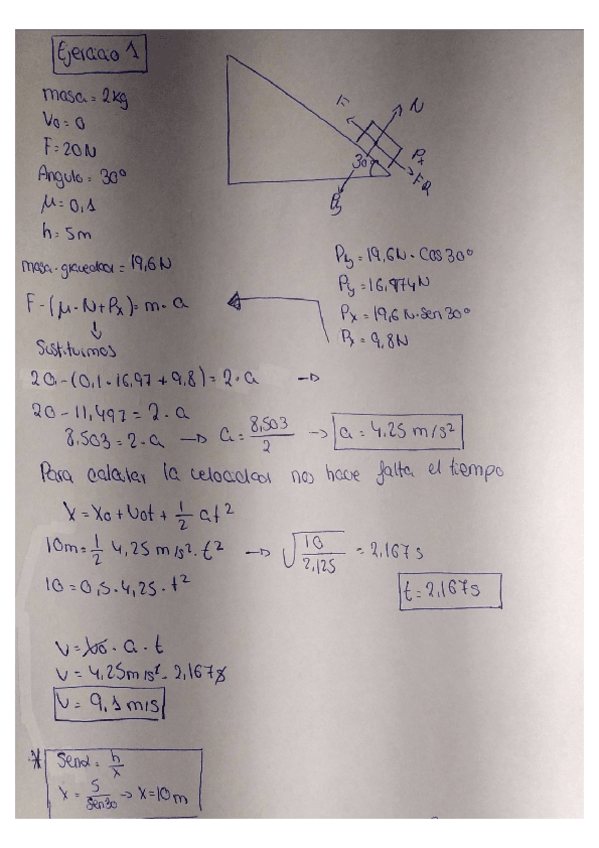 Ejercicio 1
masa = 2kg
V₀ = 0
F = 20N
Angulo = 30º
μ = 0,1
h = 5m
masa · gravedad = 19,6N
F N
30 Px
FR
Py
Py = 19,6N · Cos 30º
Py = 16,974N
Px = 19,6N · Sen 30º
Px = 9,8N
F - (μ · N + Px) = m · a
↓
Sustituimos
20 - (0,1 · 16,97 + 9,8) = 2 · a →
20 - 11,497 = 2 · a
8.503 = 2 · a → a = 8,503/2 → a = 4,25 m/s²
Para calcular la velocidad nos hace falta el tiempo
X = X₀ + V₀t + 1/2 at²
10m = 1/2 4,25 m/s² · t² → √10/2,125 = 2,167 s
10 = 0,5 · 4,25 · t² t = 2,167s
V = V₀ · a · t
V = 4,25m/s² · 2,167s
V = 9,1 m/s
* Senα = h/x
X = 5/Sen30 → X = 10m